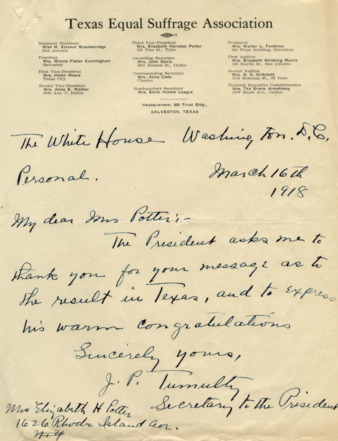 Texas Equal Suffrage Association
Honorary President
Miss M. Eleanor Brackenridge
San Antonio
President
Mrs. Minnie Fisher Cunningham
Galveston
First Vice-President
Mrs. Helen Moore
Texas City
Second Vice-President
Mrs. Anna B. Walker
Third Vice-President
Mrs. Elizabeth Herndon Potter
Tyler
Recording Secretary
Mrs. John Davis
Dallas
Corresponding Secretary
Headquarters Secretary
Mrs. Edith Hinkle League
Treasurer
First Auditor
Second Auditor
National Executive Committeeman
Mrs. Tex Erwin Armstrong
Headquarters:
GALVESTON, TEXAS
The White House Washington. D.C,
Personal. March 16th
1918
My dear Mrs Potter:-
The President asks me to
thank you for your message as to
the result in Texas, and to express
his warm congratulations
Sincerely yours,
J. P. Tumulty
Secretary to the President
Mrs Elizabeth H Potter
1626 Rhode Island Ave.